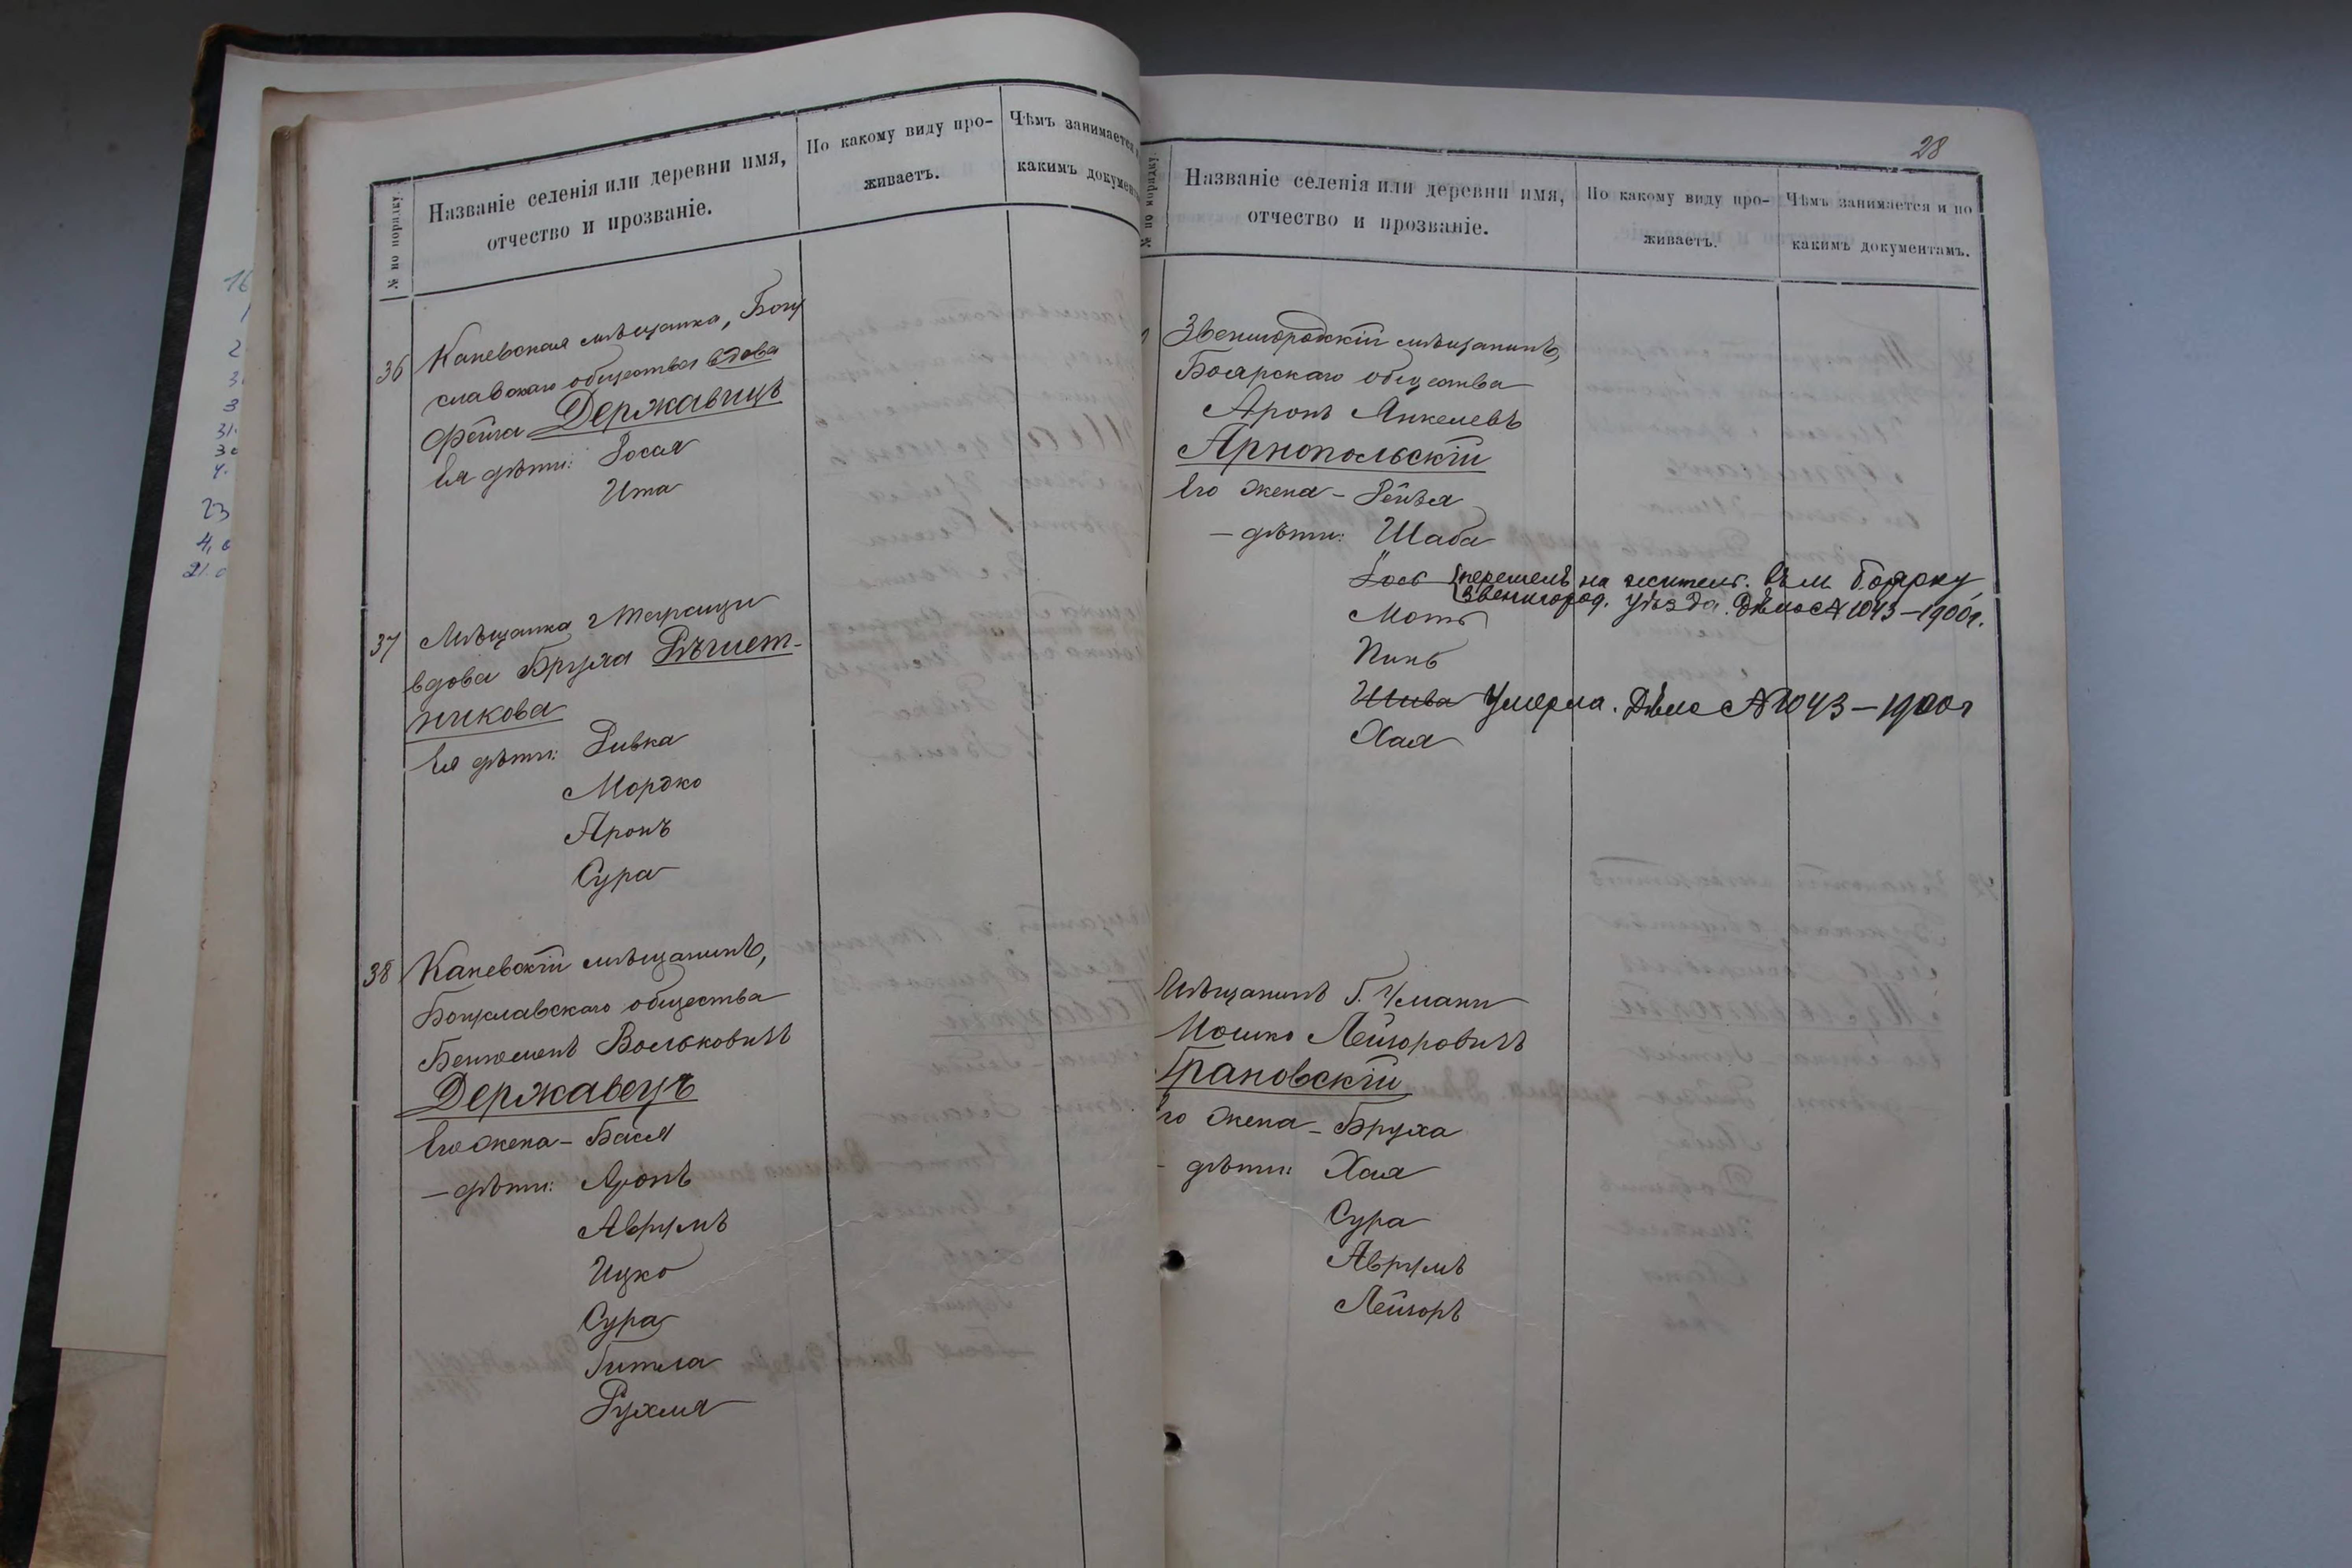 № по порядку.
Названіе селенія или деревни имя,
отчество и прозваніе.
По какому виду про-
живаетъ.
Чѣмъ занимается
какимъ докумен
36
Каневская мѣщанка, Богу
славскаго общества вдова
Фейга Державицъ
Ея дѣти: Рося
Ита
37
Мѣщанка г Таращи
вдова Бруха Рѣшет-
никова
Ея дѣти: Ривка
Мордко
Аронъ
Сура
38
Каневскій мѣщанинъ,
Богуславскаго общества
Беньеменъ Вольковичъ
Державецъ
Его жена - Бася
— дѣти: Аронъ
Аврумъ
Ицко
Сура
Гитля
Рухля
28
№ по порядку.
Названіе селенія или деревни имя,
отчество и прозваніе.
По какому виду про-
живаетъ.
Чѣмъ занимается и по
какимъ документамъ.
Звенигородскій мѣщанинъ,
Боярскаго общества
Аронъ Янкелевъ
Арнопольскій
Его жена - Рейзя
— дѣти: Шаба
перешелъ на жительс. въ м. Боярку,
Звенигород. уѣзда. Дѣло № 1043—1900г.
Моть
Пинь
Шива Умерла. Дѣло № 1043—1900г
Хая
Мѣщанинъ Г. Умани
Мошко Лейзоровичъ
Грановскій
Его жена - Бруха
- дѣти: Хая
Сура
Аврумъ
Лейзоръ
16
2
3
3
31
30
4
23
4,0
21.0